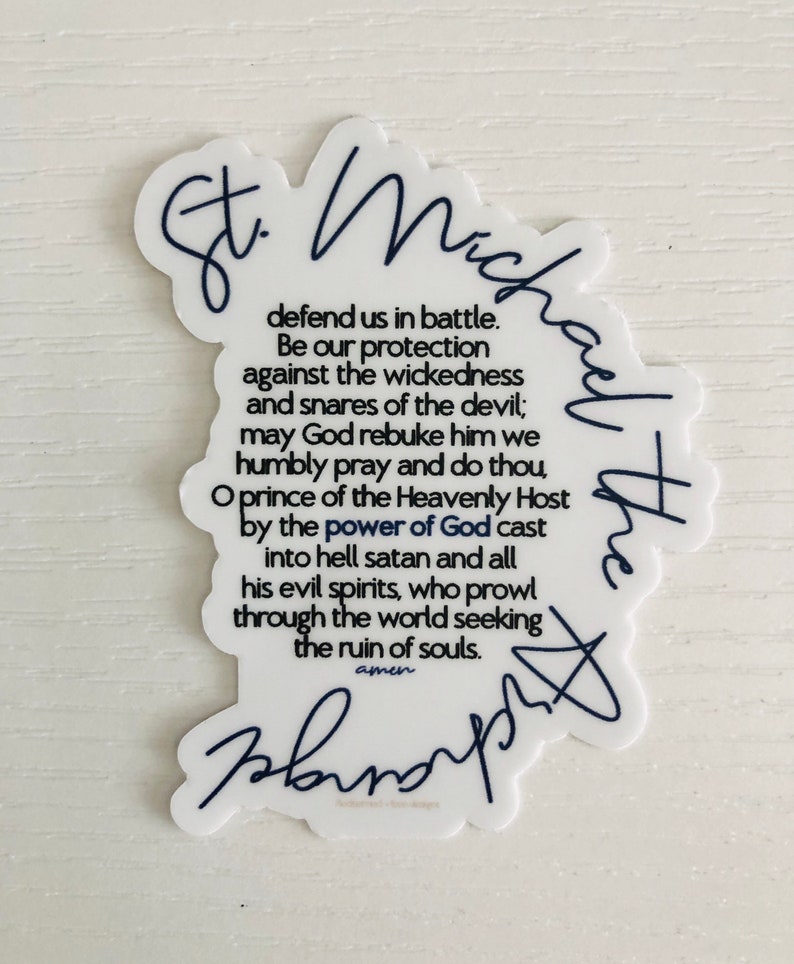 St. Michael the Archangel
defend us in battle.
Be our protection
against the wickedness
and snares of the devil;
may God rebuke him we
humbly pray and do thou,
O prince of the Heavenly Host
by the power of God cast
into hell satan and all
his evil spirits, who prowl
through the world seeking
the ruin of souls.
amen